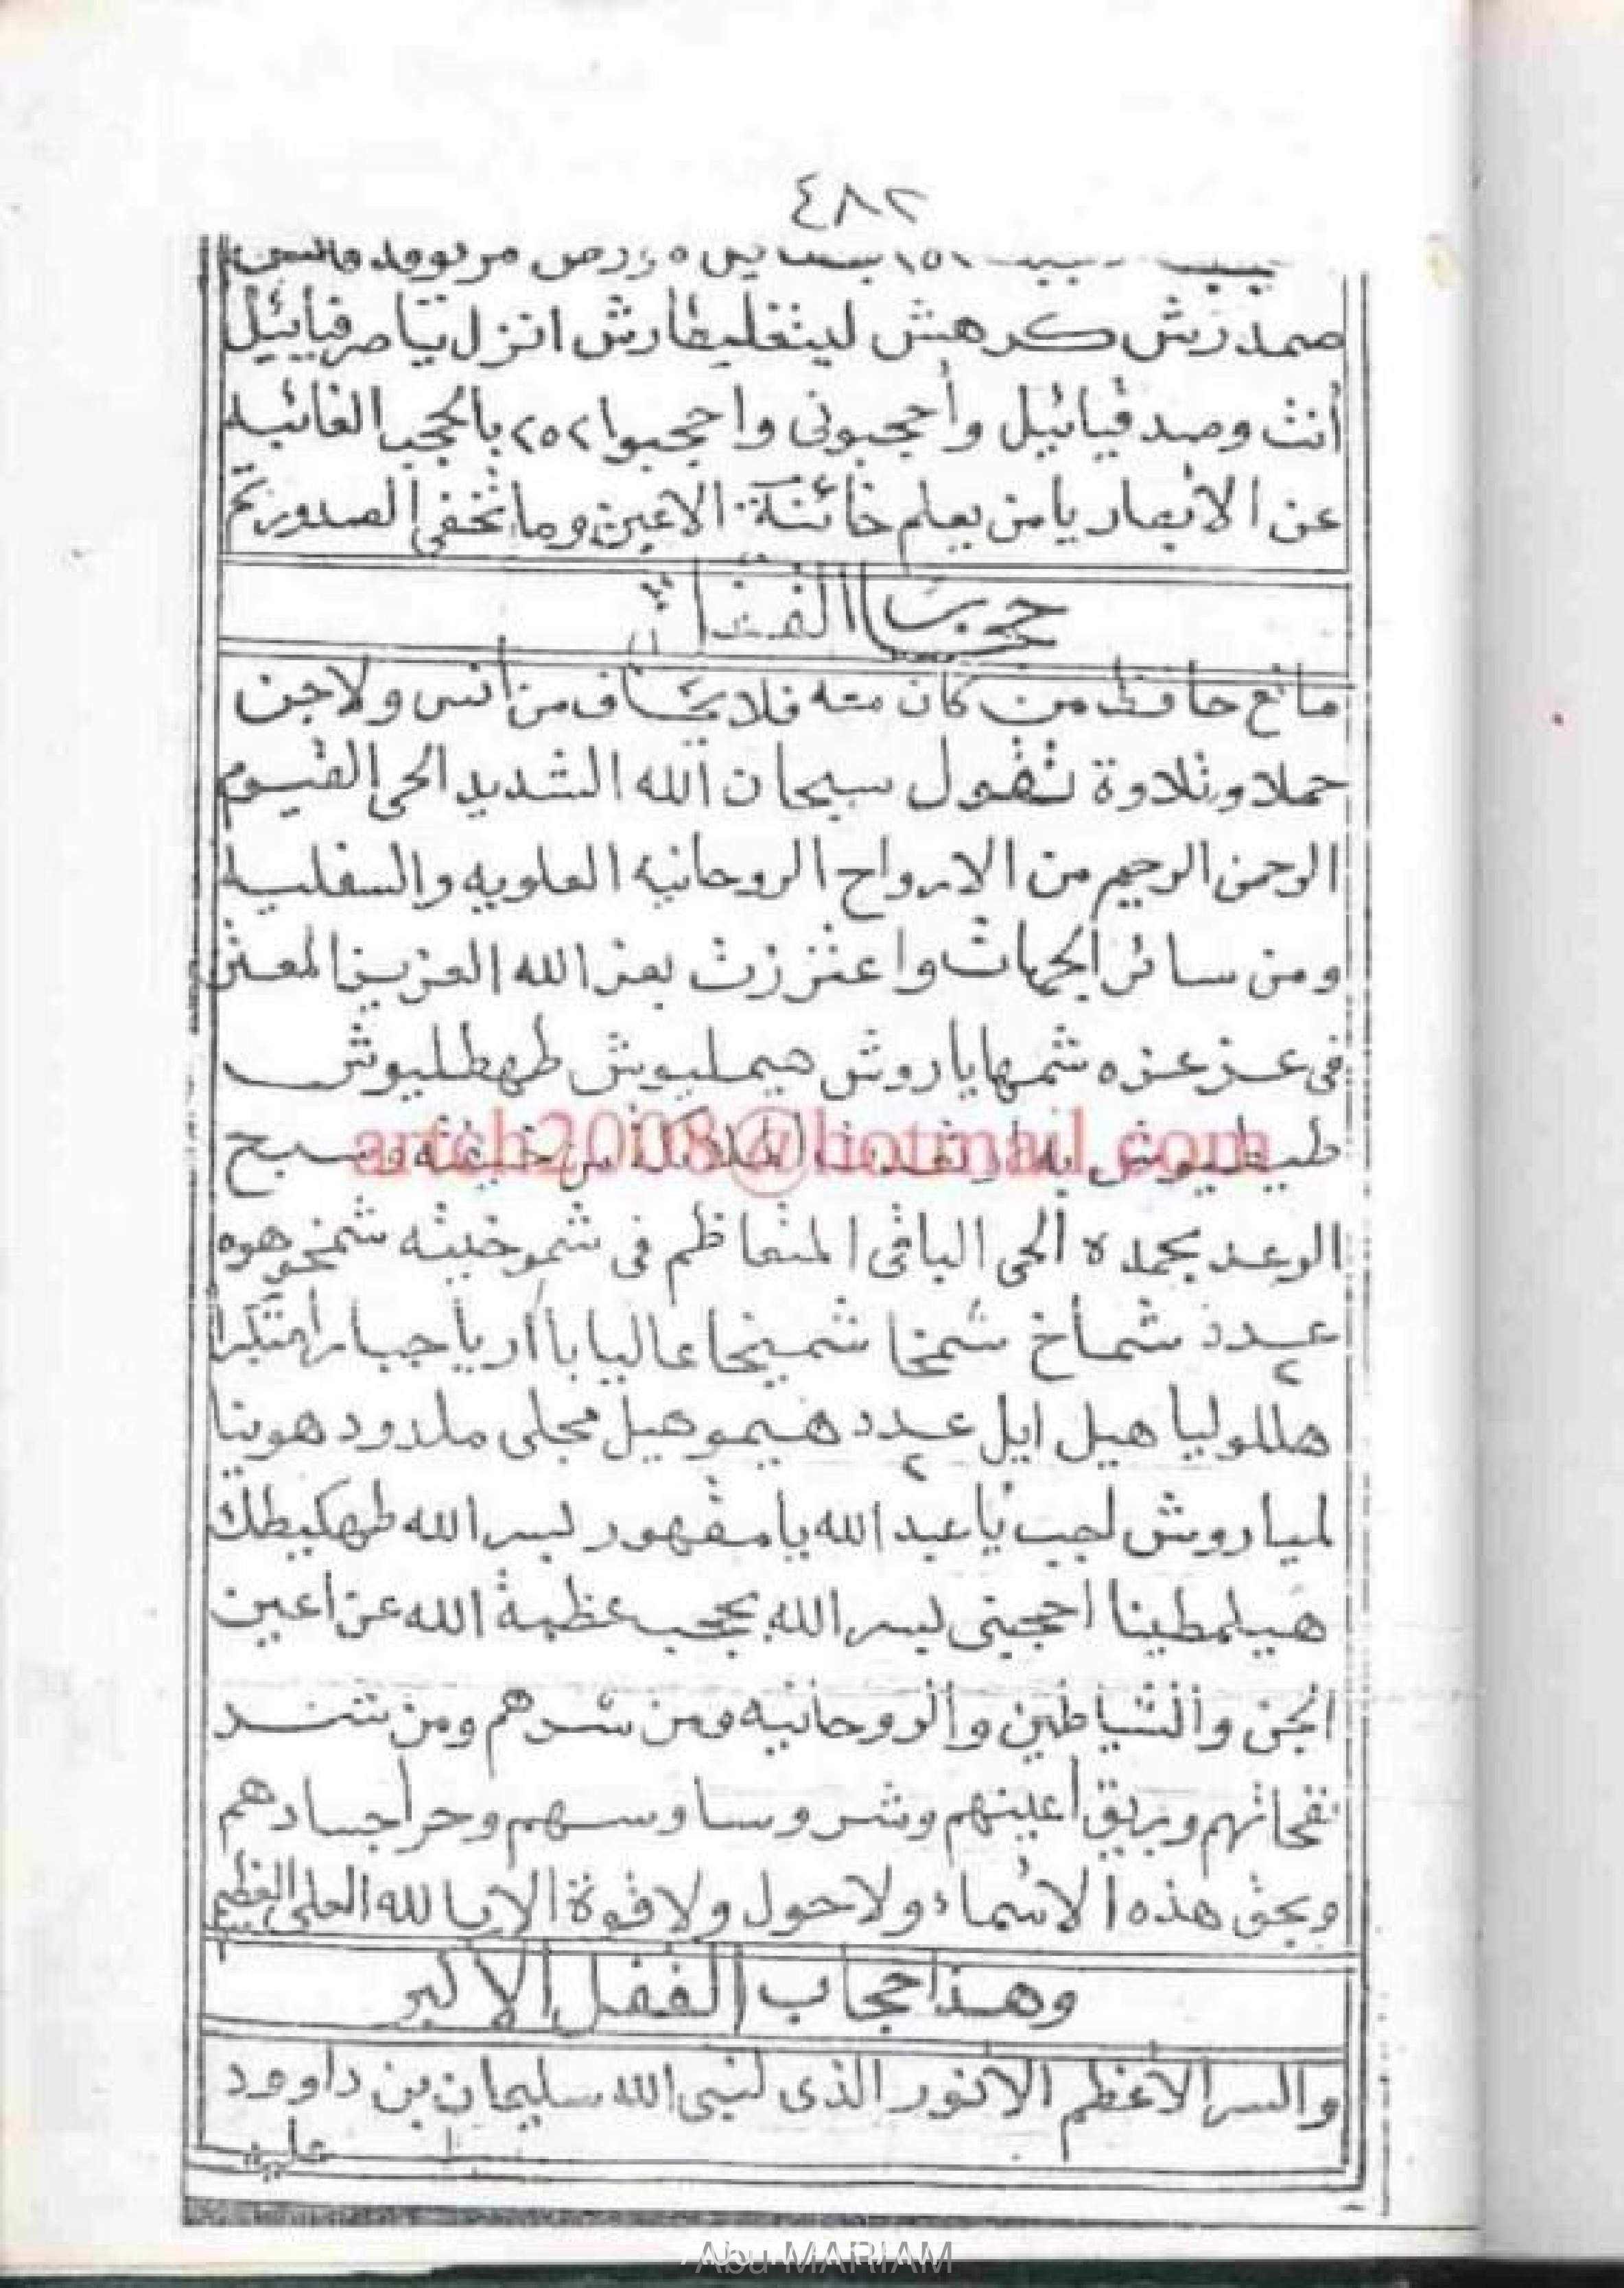 ٤٨٢
صمدرش كرهش لينغليطارش انزل يا صرفيائيل
أنت وصدقيائيل وأحجبونى واحجبوا ٢٥٢ بالحجب الغائبه
عن الأبصار يا من يعلم خائنة الاعين وما تخفى الصدور تم
حجاب
مانع حافظ من كان معه فلا يخاف من انس ولا جن
حملا وتلاوة تقول سبحان الله الشديد الحى القيوم
الرحمن الرحيم من الارواح الروحانيه العلويه والسفلية
ومن سائر الجهات واعتززت بعز الله العزيز المعتز
فى عز عزه شمهاياروش هيمليوش طهطليوش
طيطيوش من خيفته ويسبح
artch2008@hotmail.com
الرعد بحمده الحى الباقى المتعاظم فى شموخيته شمخ هوه
عدد ٢ شماخ شمخا شميخا عاليا باار يا جبارا متكبرا
هللوليا هيل ايل عدد ٢ هيموهيل مجلى ملدود هوينا
لمياروش اجب يا عبد الله يا مقهور لسر الله طهكيطلك
هيلمطينا احجبنى لسر الله بحجب عظمة الله عن اعين
الجن والشياطين والروحانيه ومن شرهم ومن شد
نفخاتهم وبريق أعينهم وشر وساوسهم وحر اجسادهم
وبحق هذه الاسماء ولا حول ولا قوة الا بالله العلى العظيم
وهذا حجاب القفل الأكبر
والسر الأعظم الأنور الذى لنبى الله سليمان بن داوود
عليه
Abu MARIAM